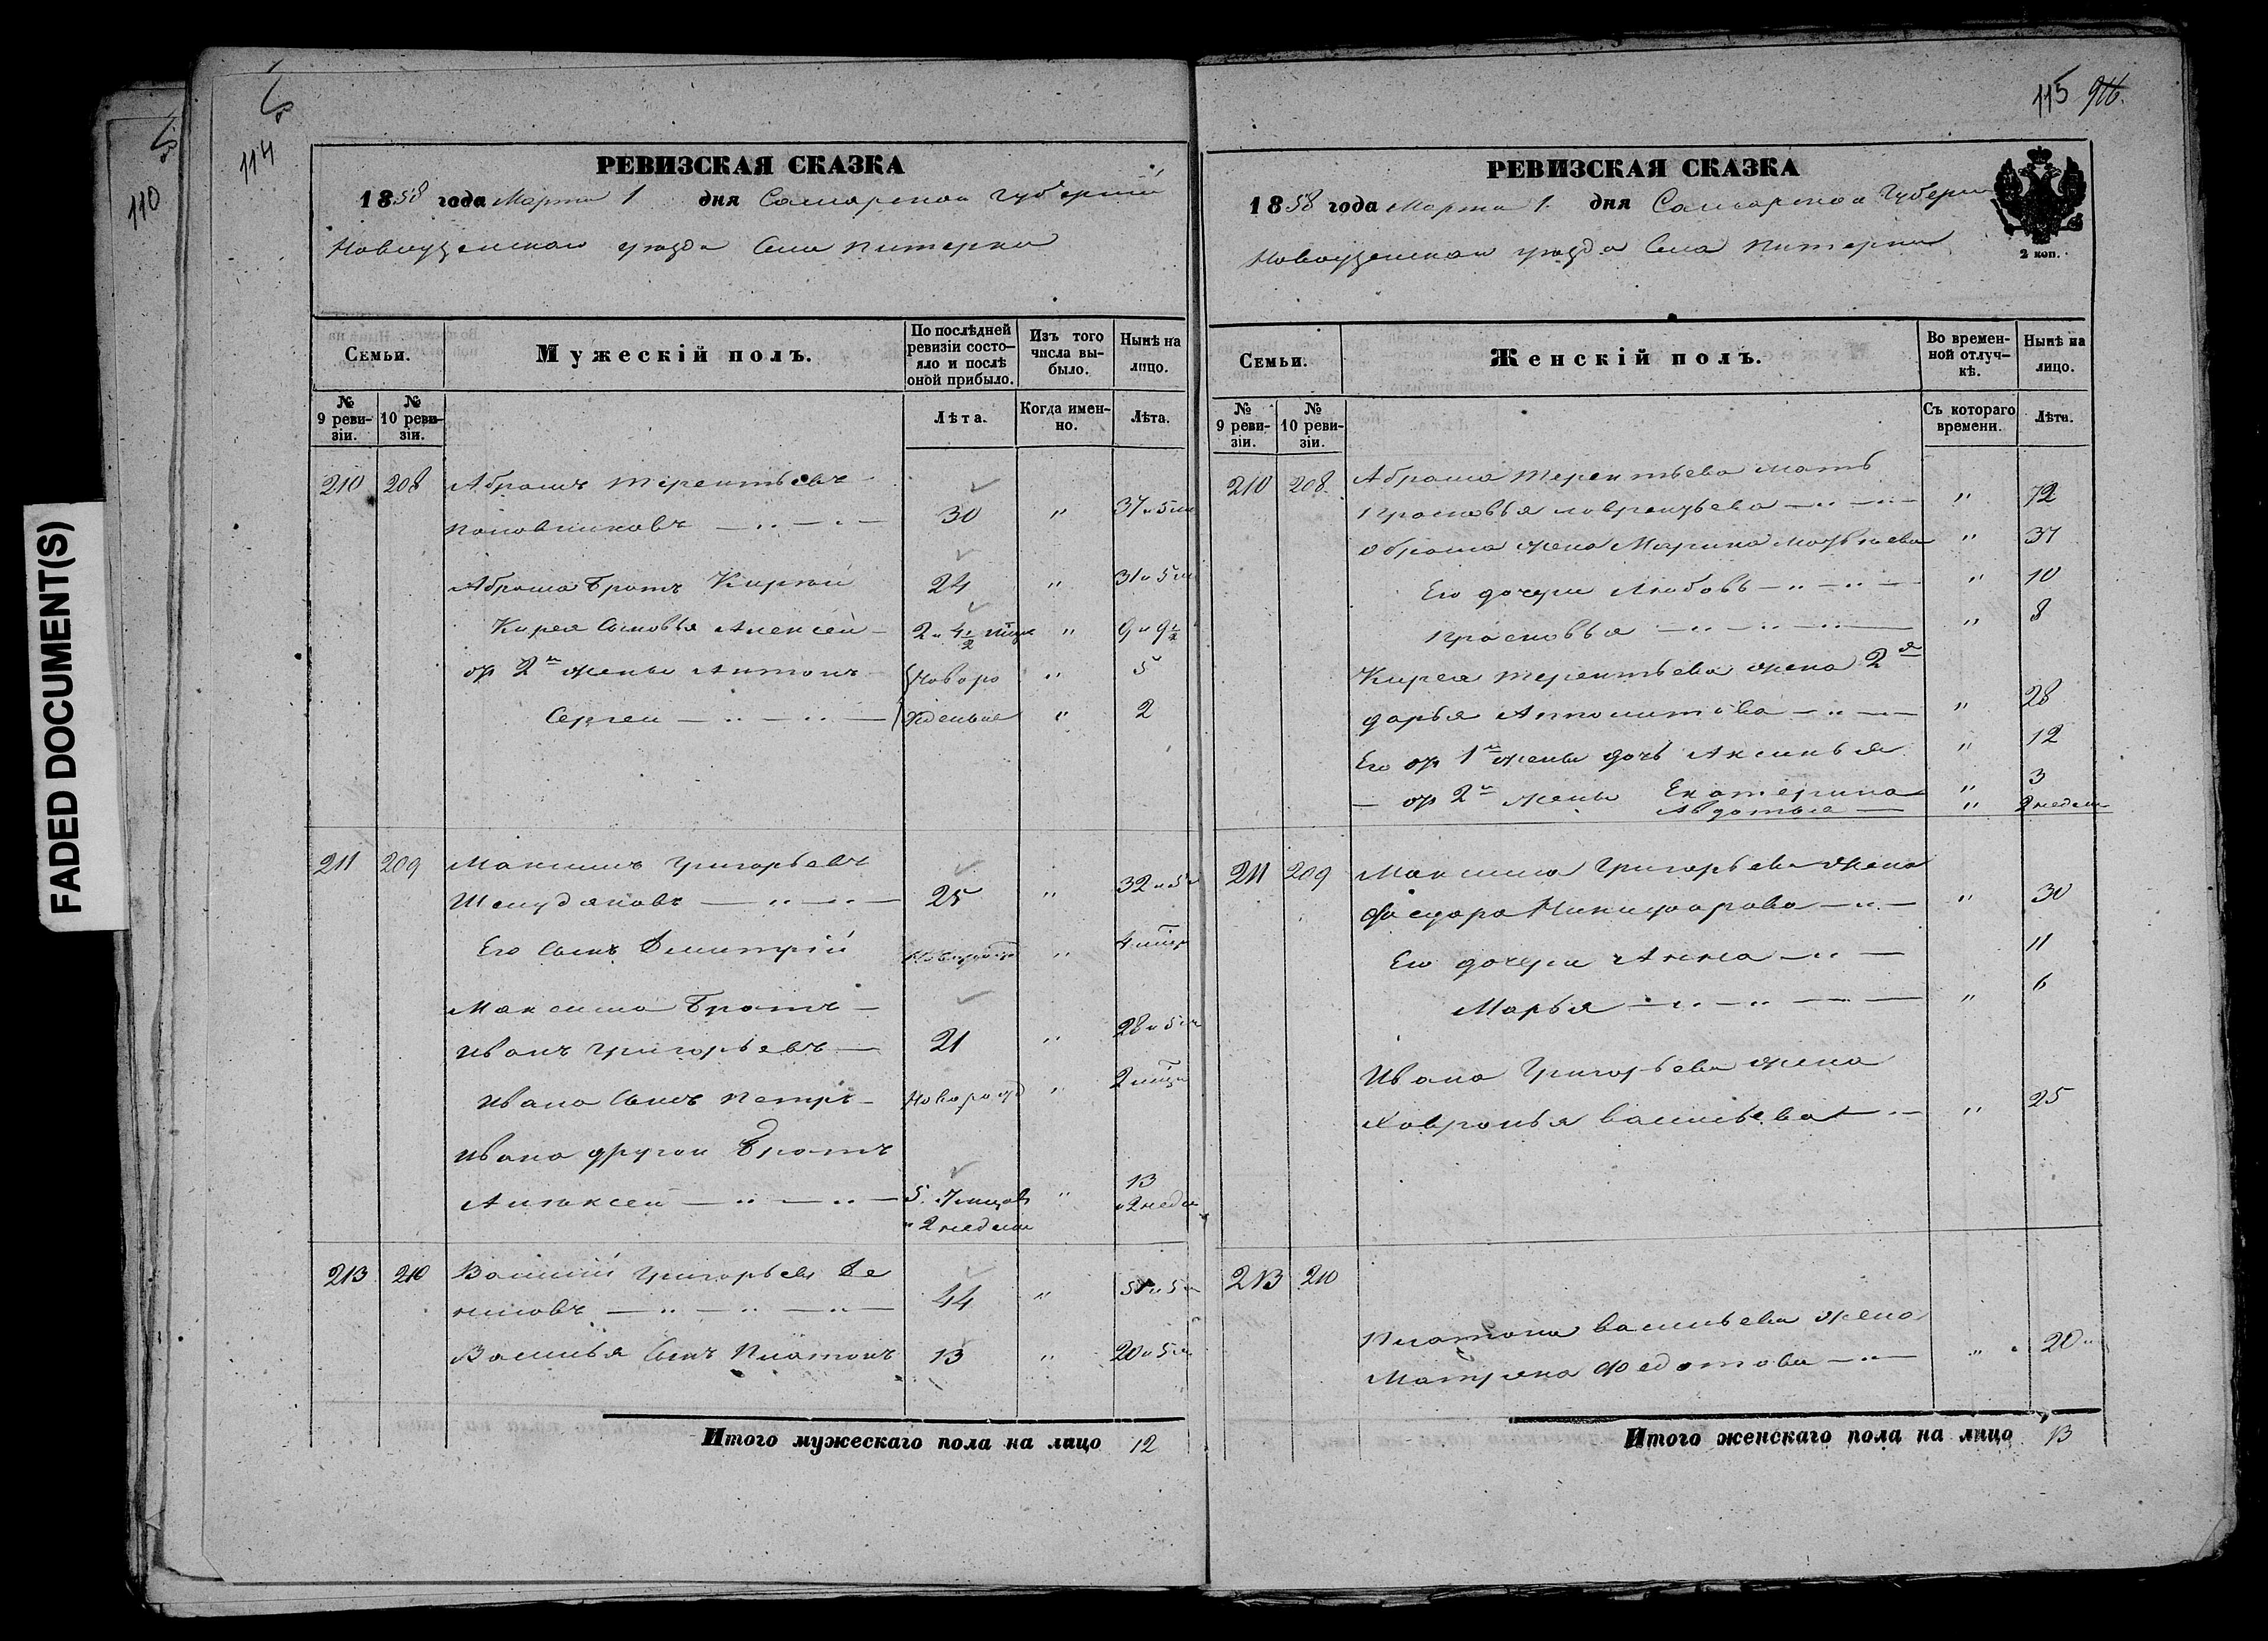 FADED DOCUMENT(S)
110
114
РЕВИЗСКАЯ СКАЗКА
1858 года Марта 1 дня Самарской Губерніи
Новоузенскаго уезда Села Питерки
Семьи.
Мужескій полъ.
По послѣдней ревизіи состо-
яло и послѣ оной прибыло.
Изъ того числа вы-
было.
Нынѣ на лицо.
№ 9 реви-
зіи.
№ 10 реви-
зіи.
Лѣта.
Когда имен-
но.
Лѣта.
210 208 Абрамъ Терентьевъ
Половниковъ 30 " 37 и 5 м
Абрама Братъ Кирей 24 " 31 и 5 м
Кирея Сыновья Алексей 2 и 4 1/2 мца " 9 и 9 1/2
от 2й жены Антонъ Новоро " 5
Сергей жденые " 2
211 209 Максимъ Григорьевъ
Шелудяковъ 25 " 32 и 5 м
Его Сынъ Дмитрій "
Максима Братъ
Иванъ Григорьевъ 21 " 28 и 5 м
Ивана Сынъ Петръ Новорожд " 2 мца
Ивана другой Братъ
Алексей 5. 7 мцов " 13
и 2 недели и 2 недели
213 210 Василий Григорьевъ Де
нисовъ 44 " 51 и 5 м
Василья Сынъ Платонъ 13 " 20 и 5 м
Итого мужескаго пола на лицо 12
115
РЕВИЗСКАЯ СКАЗКА
1858 года Марта 1. дня Самарской Губерн
Новоузенскаго уезда Села Питерки
2 коп.
Семьи.
Женскій полъ.
Во времен-
ной отлуч-
кѣ.
Нынѣ на лицо.
№ 9 реви-
зіи.
№ 10 реви-
зіи.
Съ котораго времени.
Лѣта.
210 208. Абрама Терентьева мать
Прасковья Лаврентьева " 72
Абрама жена Марина " 37
Его дочери Любовь " 10
Прасковья " 8
Кирея Терентьева жена 2я
Дарья " 28
Его от 1й жены дочь Аксинья " 12
от 2й жены Екатерина " 3
Авдотья " 2 недели
211 209 Максима Григорьева жена
Федора Никифорова " 30
Его дочери Анна 11
Марья " 6
Ивана Григорьева жена
Хавронья Васильева " 25
213 210
Платона Васильева жена
Матрена Федотова " 20
Итого женскаго пола на лицо 13